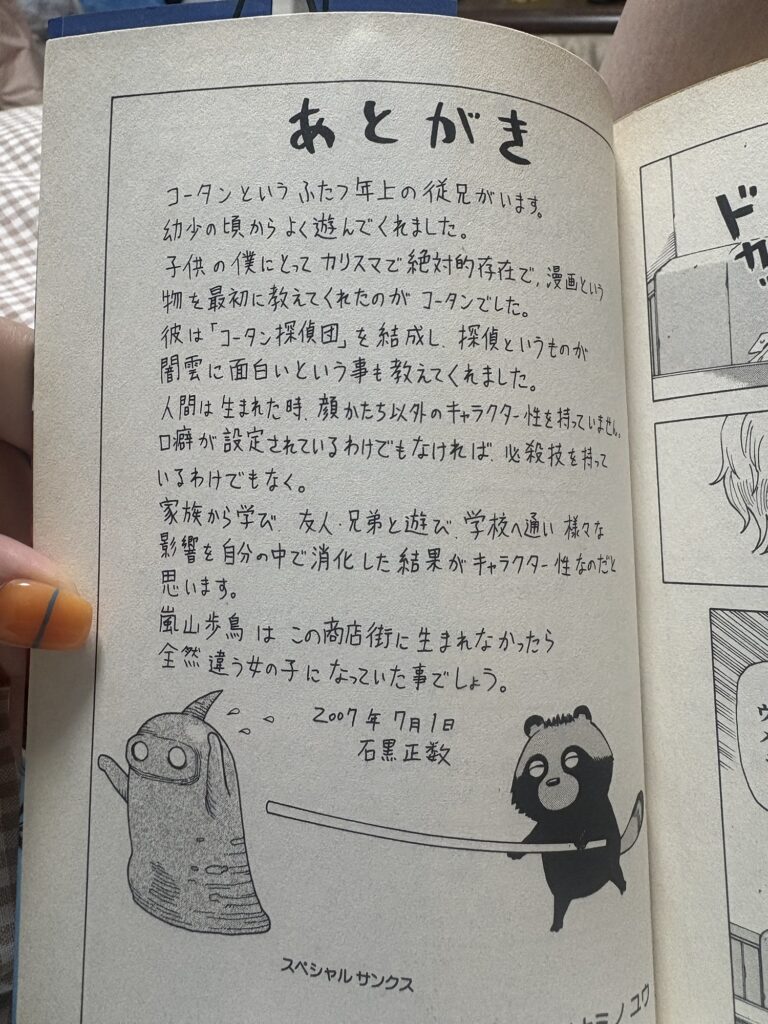 あとがき
コータンという ふたつ年上の従兄がいます。
幼少の頃からよく遊んでくれました。
子供の僕にとって カリスマで絶対的存在で、漫画という
物を最初に教えてくれたのが コータンでした。
彼は「コータン探偵団」を結成し、探偵というものが
闇雲に面白いという事も教えてくれました。
人間は生まれた時、顔かたち以外のキャラクター性を持っていません。
口癖が設定されているわけでもなければ、必殺技を持って
いるわけでもなく。
家族から学び、友人・兄弟と遊び、学校へ通い 様々な
影響を自分の中で消化した結果がキャラクター性なのだと
思います。
嵐山歩鳥は この商店街に生まれなかったら
全然違う女の子になっていた事でしょう。
2007年7月1日
石黒正数
スペシャルサンクス
ミノ ユウ
ドカッ